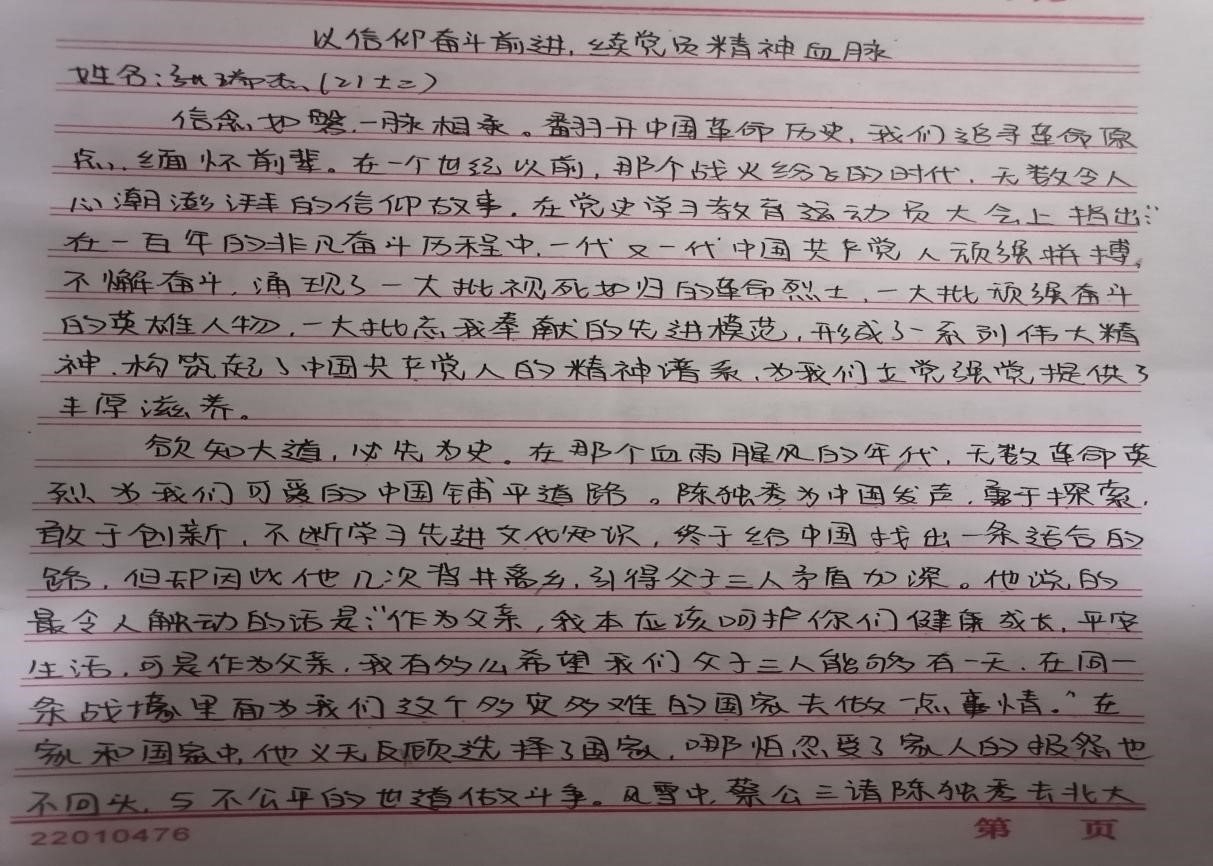 以信仰奋斗前进,续党员精神血脉
姓名: 瑞杰(21士二)
信念如磐,一脉相承。翻开中国革命历史,我们追寻革命原
点,缅怀前辈。在一个世纪以前,那个战火纷飞的时代,无数令人
心潮澎湃的信仰故事,在党史学习教育运动员大会上指出:“
在一百年的非凡奋斗历程中,一代又一代中国共产党人顽强拼搏,
不懈奋斗,涌现了一大批视死如归的革命烈士,一大批顽强奋斗
的英雄人物,一大批忘我奉献的先进模范,形成了一系列伟大精
神,构筑起了中国共产党人的精神谱系,为我们立党强党提供了
丰厚滋养。
欲知大道,必先为史。在那个血雨腥风的年代,无数革命英
烈为我们可爱的中国铺平道路。陈独秀为中国发声,勇于探索,
敢于创新,不断学习先进文化知识,终于给中国找出一条适合的
路,但却因此他几次背井离乡,引得父子三人矛盾加深。他说的
最令人触动的话是:“作为父亲,我本应该呵护你们健康成长,平安
生活,可是作为父亲,我有多么希望我们父子三人能够有一天,在同一
条战壕里面为我们这个多灾多难的国家去做一点事情。”在
家和国家中,他义无反顾选择了国家,哪怕忍受了家人的报怨也
不回头,与不公平的世道做斗争。风雪中,蔡公三请陈独秀去北大
22010476
第 页